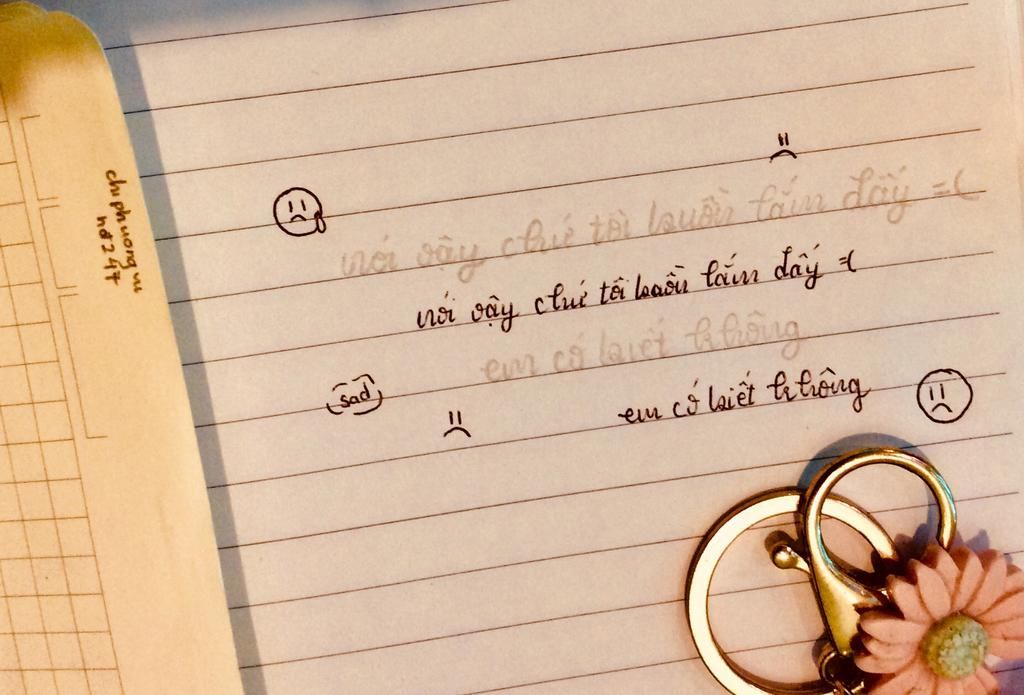 chiphuongvu
nơ247
nói vậy chứ tôi buồn lắm đấy =(
nói vậy chứ tôi buồn lắm đấy =(
em có biết không
sad
em có biết không